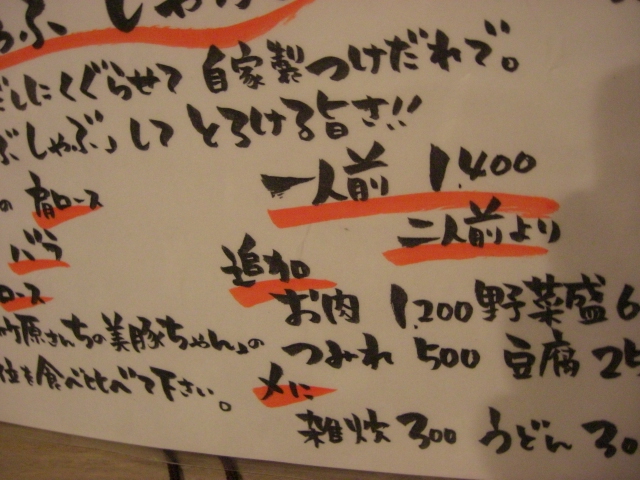 しゃ
だしにくぐらせて 自家製つけだれで。
ぶしゃぶ」して とろける旨さ!!
一人前 1.400
の 肩ロース
二人前より
バラ
追加
ロース
お肉 1.200 野菜盛 6
竹原さんちの美豚ちゃん」の
つみれ 500 豆腐 25
位を食べ比べて下さい。
〆に
雑炊 300 うどん 30